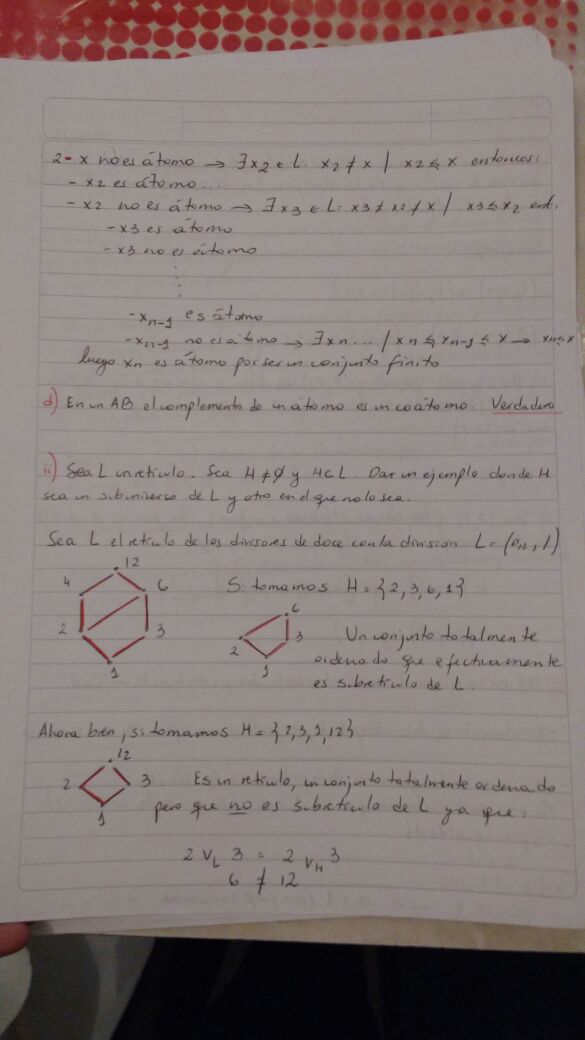 2- x no es átomo → ∃x2 ∈ L: x2 ≠ x | x2 ≤ x entonces:
- x2 es átomo...
- x2 no es átomo → ∃x3 ∈ L: x3 ≠ x2 ≠ x | x3 ≤ x2 ent.
- x3 es átomo
- x3 no es átomo
⋮
- xn-1 es átomo
- xn-1 no es átomo → ∃xn ... / xn ≤ xn-1 ≤ x → xn ≤ x
luego xn es átomo por ser un conjunto finito
d) En un AB el complemento de un átomo es un coátomo. Verdadero
ii) Sea L un retículo. Sea H ≠ ∅ y H ⊂ L. Dar un ejemplo donde H
sea un subuniverso de L y otro en el que no lo sea.
Sea L el retículo de los divisores de doce con la division L = (D12, |)
12
4 6
2 3
1
Si tomamos H = {2, 3, 6, 1}
6
2 3
1
Un conjunto totalmente
ordenado que efectivamente
es subretículo de L.
Ahora bien, si tomamos H = {2, 3, 1, 12}
12
2 3
1
Es un retículo, un conjunto totalmente ordenado
pero que no es subretículo de L ya que:
2 ∨L 3 = 2 ∨H 3
6 ≠ 12